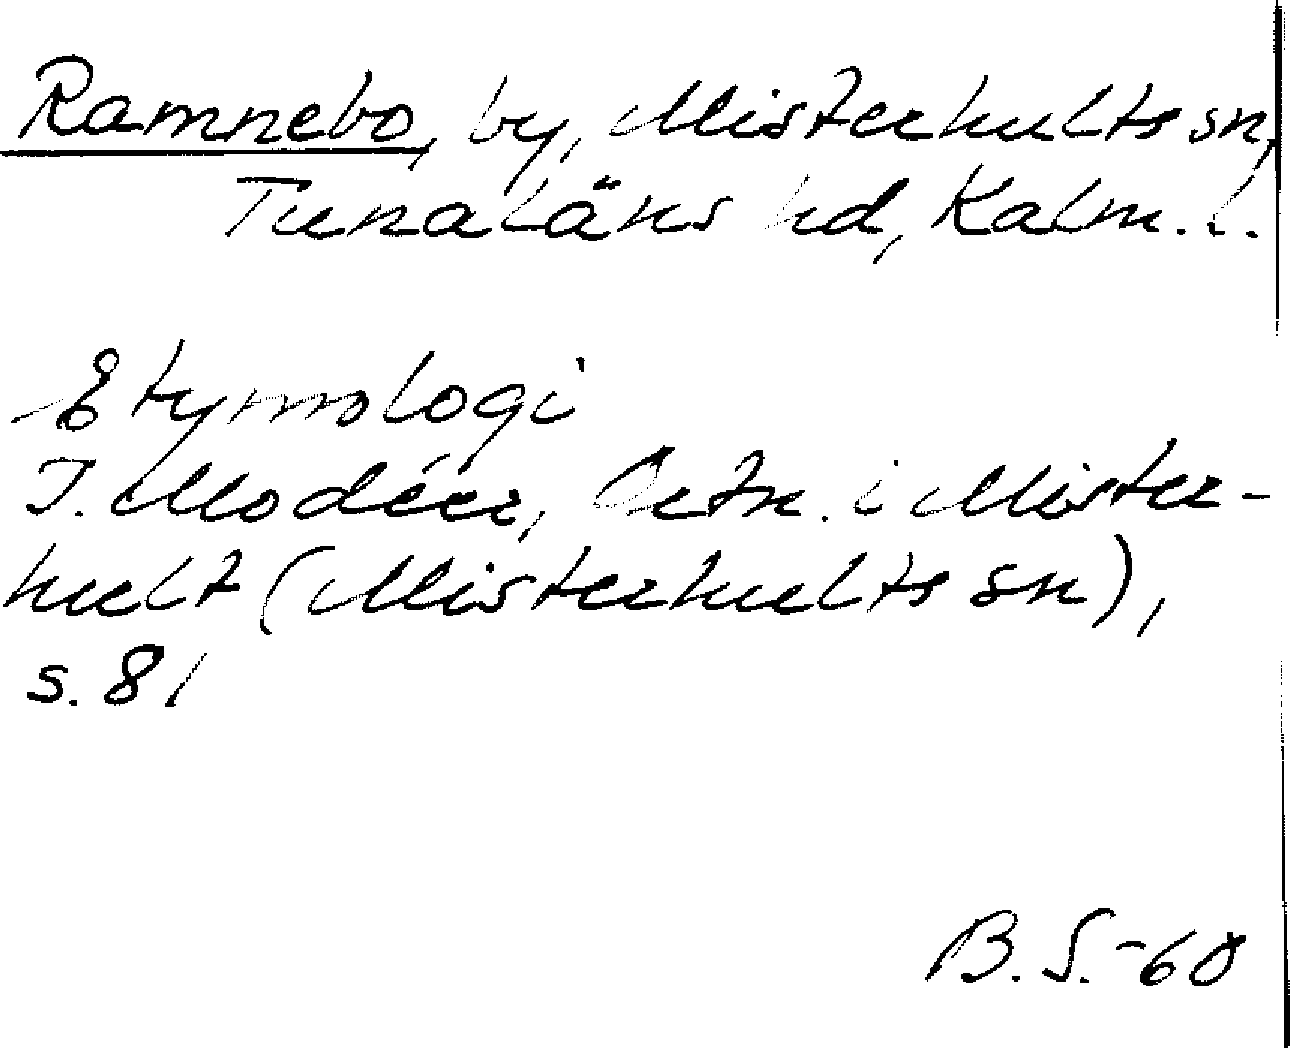 Ramnebo, by, Misterhults sn,
Tunaläns hd, Kalm. l.
Etymologi
I. Modéer, Ortn. i Mister-
hult (Misterhults sn),
s. 81
B. S. -60